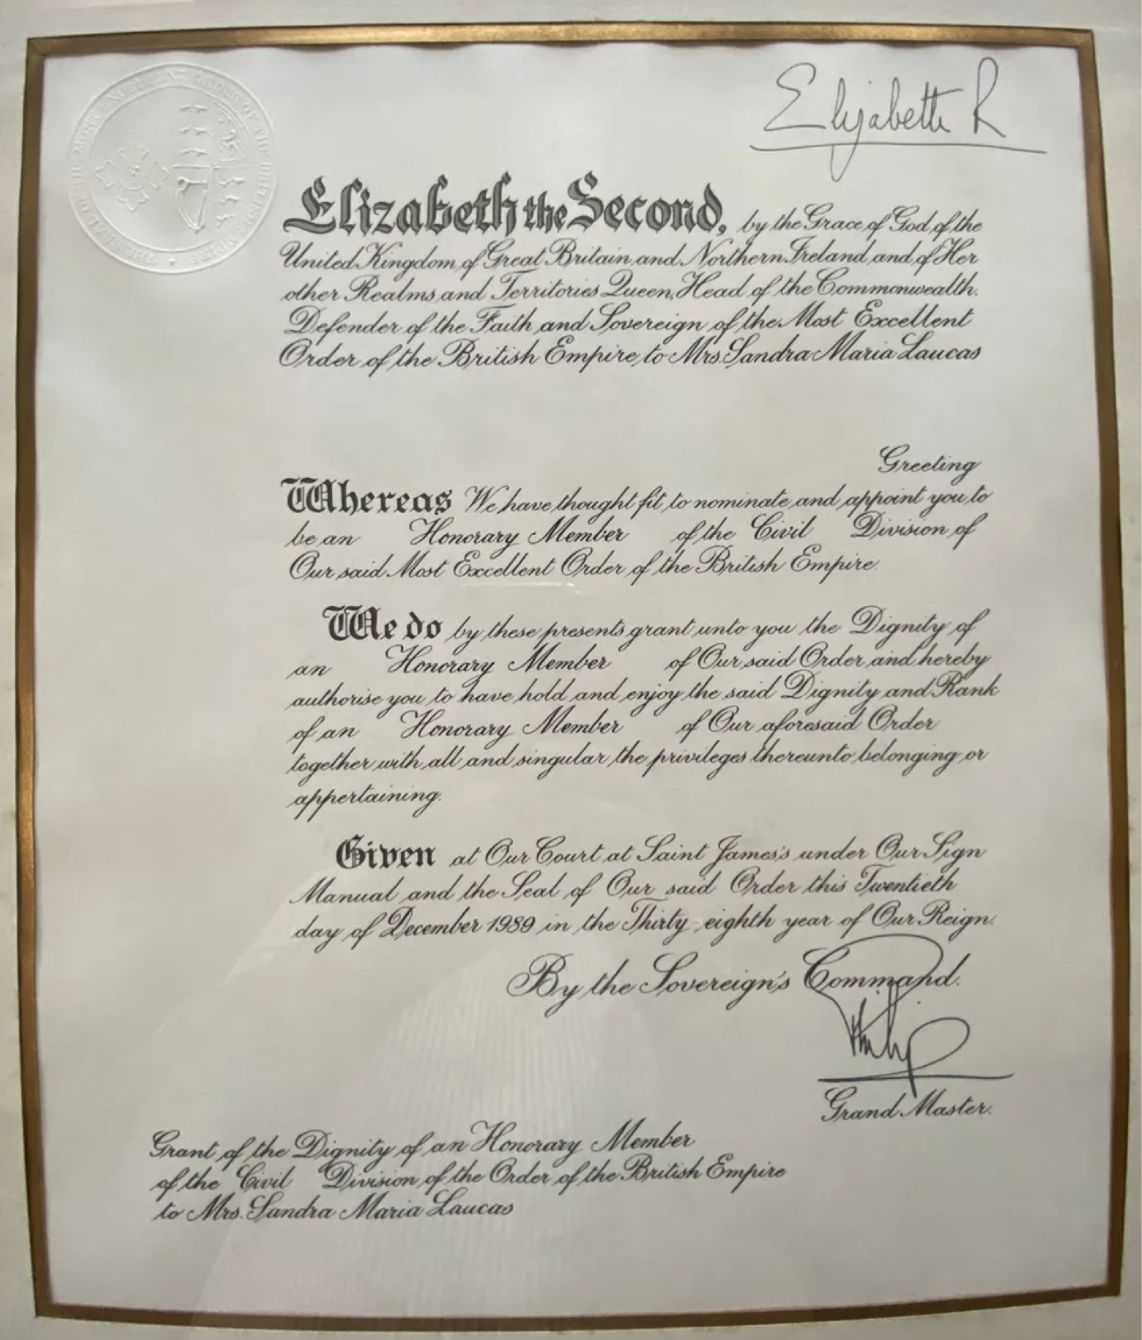 Elizabeth R
Elizabeth the Second, by the Grace of God of the
United Kingdom of Great Britain and Northern Ireland and of Her
other Realms and Territories Queen, Head of the Commonwealth.
Defender of the Faith and Sovereign of the Most Excellent
Order of the British Empire to Mrs. Sandra Maria Laucas
Greeting
Whereas We have thought fit to nominate and appoint you to
be an Honorary Member of the Civil Division of
Our said Most Excellent Order of the British Empire.
We do by these presents grant unto you the Dignity of
an Honorary Member of Our said Order and hereby
authorise you to have hold and enjoy the said Dignity and Rank
of an Honorary Member of Our aforesaid Order
together with all and singular the privileges thereunto belonging or
appertaining.
Given at Our Court at Saint James's under Our Sign
Manual and the Seal of Our said Order this Twentieth
day of December 1989 in the Thirty-eighth year of Our Reign.
By the Sovereign's Command.
Philip
Grand Master.
Grant of the Dignity of an Honorary Member
of the Civil Division of the Order of the British Empire
to Mrs. Sandra Maria Laucas